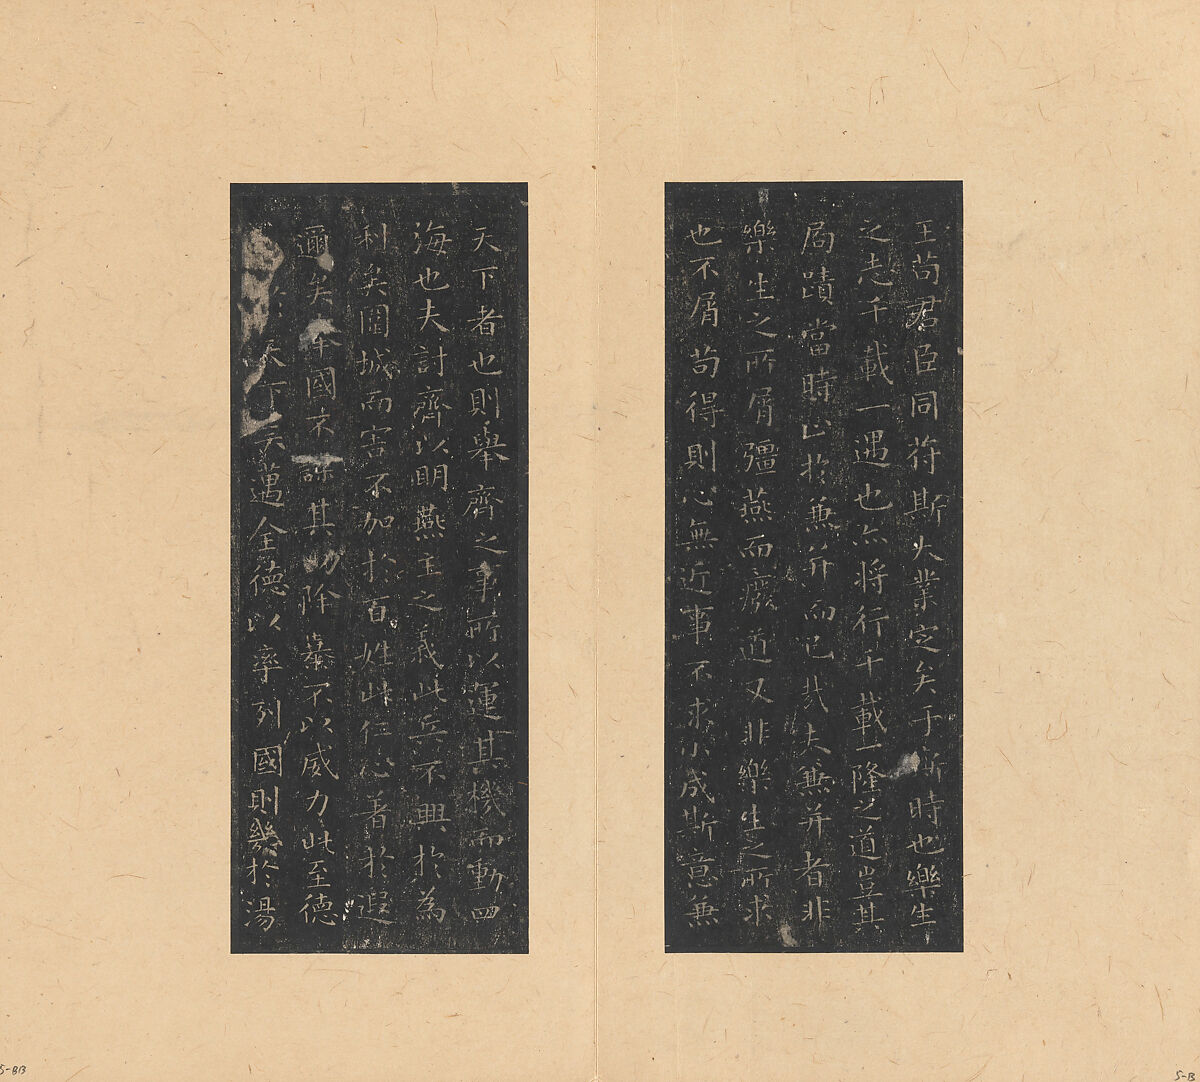 王苟君臣同符斯大業定矣于斯時也樂生
之志千載一遇也亦將行千載一隆之道豈其
局蹟當時止於兼并而已哉夫兼并者非
樂生之所屑彊燕而廢道又非樂生之所求
也不屑苟得則心無近事不求小成斯意兼
天下者也則舉齊之事所以運其機而動四
海也夫討齊以明燕主之義此兵不興於為
利矣圍城而害不加於百姓此仁心著於遐
邇矣國不其功除暴不以威力此至德
於天下矣邁全德以率列國則幾於湯
5-B